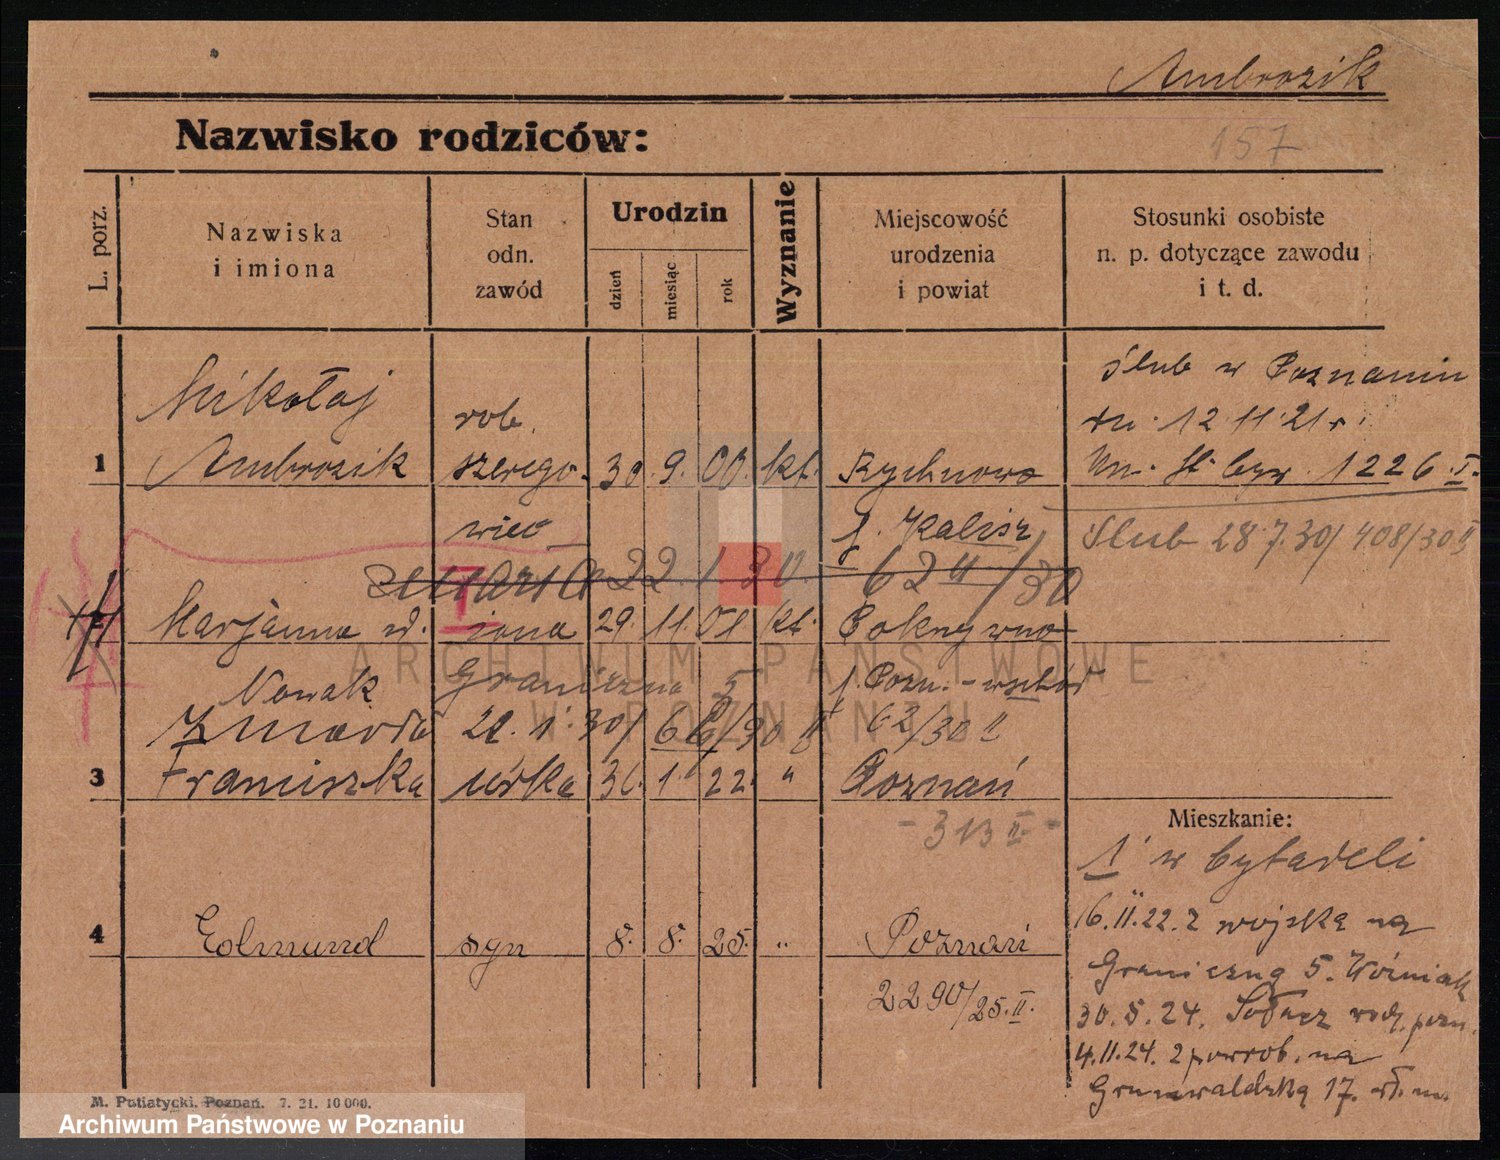 Ambrozik
Nazwisko rodziców:
157
L. porz.
Nazwiska
i imiona
Stan
odn.
zawód
Urodzin
dzień
miesiąc
rok
Wyznanie
Miejscowość
urodzenia
i powiat
Stosunki osobiste
n. p. dotyczące zawodu
i t. d.
1
Mikołaj
Ambrozik
rob.
szerego-
wiec
30. 9. 00. kt.
Rychnowo
p. Kalisz
Ślub w Poznaniu
dn. 12 11 21 r.
1226. I.
Ślub 28.7.30/408/30 II
zmarła 22. 1 30. 62 II/30
Marjanna z d.
Nowak
żona
29. 11. 01 kt.
Pokrzywno
p. Pozn. - wschód
Graniczna 5
Zmarła 22. 1. 30/ 66/30 II
62/30 II
3
Franciszka
córka
31. 1. 22. "
Poznań
- 313 II -
4
Edmund
syn
8. 8. 25. "
Poznań
2290/25. II.
Mieszkanie:
1 w Cytadeli
16.II.22. z wojska na
Graniczną 5. Woźniak
30.5.24. Sołacz rodz. pozn.
4.11.24. z powrob. na
Grunwaldzką 17.
M. Putiatycki, Poznań. 7. 21. 10 000.
ARCHIWUM PAŃSTWOWE
W POZNANIU
Archiwum Państwowe w Poznaniu